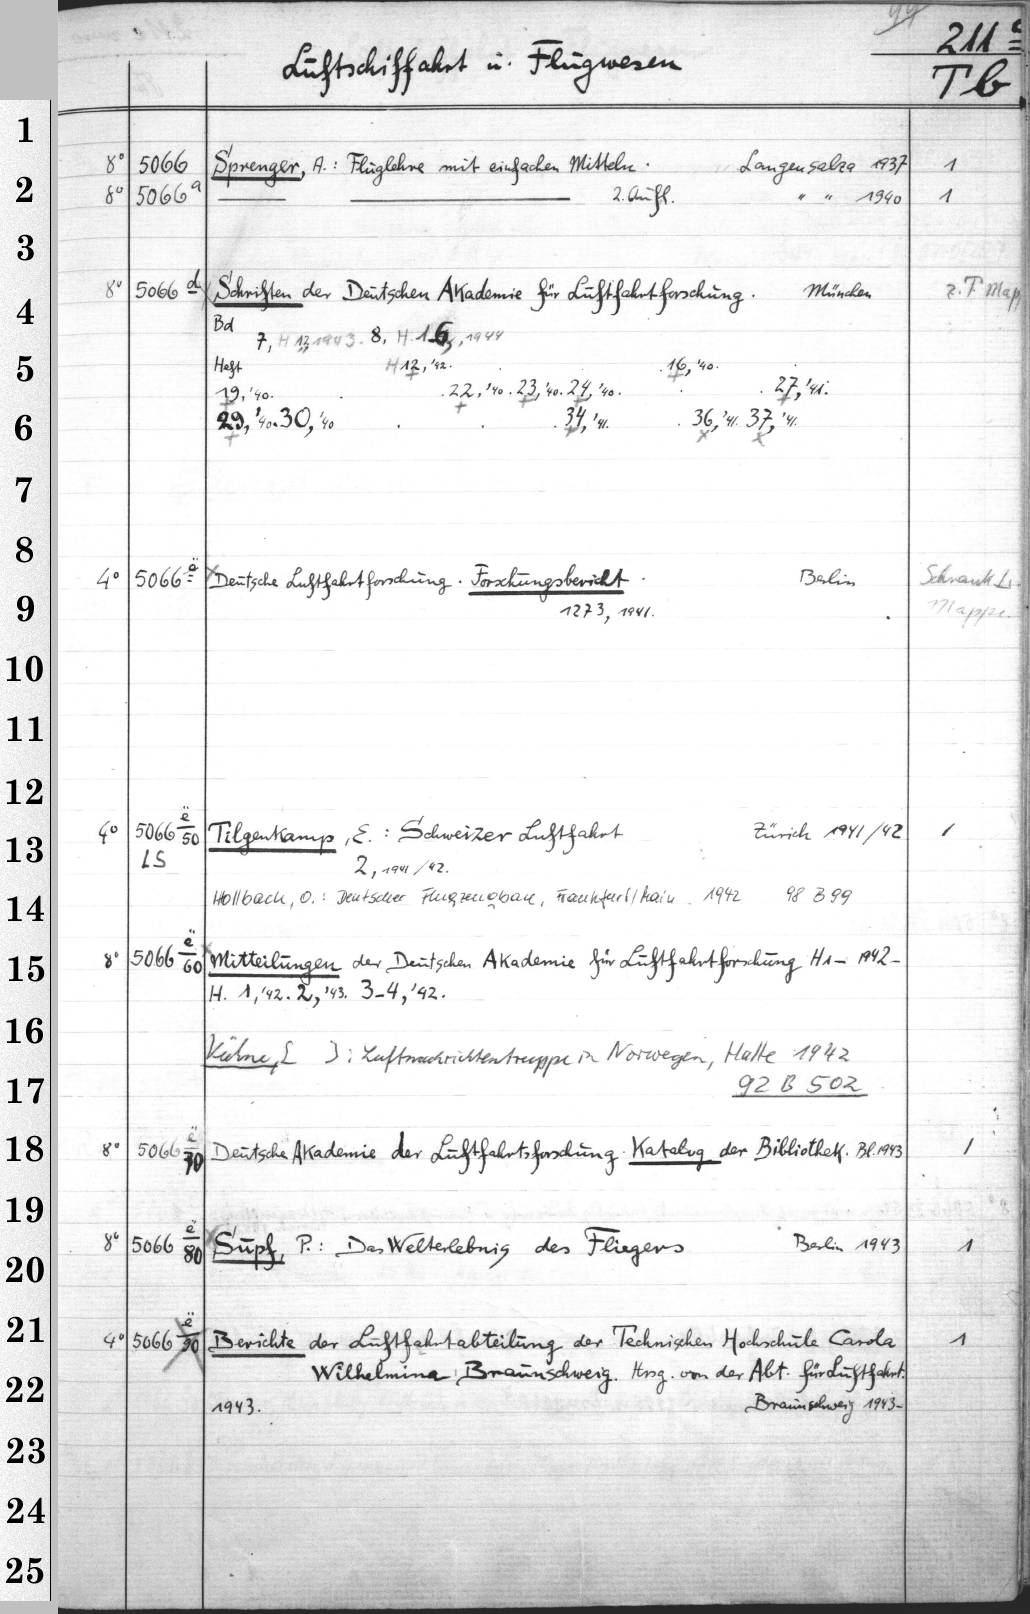 99
211 c
Luftschiffahrt u. Flugwesen
T b
1
8° 5066 Sprenger, A.: Fluglehre mit einfachen Mitteln. Langensalza 1937 1
2
8° 5066 a 2. Aufl. " " 1940 1
3
8° 5066 d Schriften der Deutschen Akademie für Luftfahrtforschung. München z. T. Mapp
4
Bd 7, H 12, 1943. 8, H. 1 6, 1944
5
Heft H 12, '42. 16, '40.
19, '40. 22, '40. 23, '40. 24, '40. 27, '41.
6
29, '40. 30, '40 34, '41. 36, '41. 37, '41.
7
8
4° 5066 ä Deutsche Luftfahrtforschung. Forschungsbericht Berlin Schrank Li
9
1273, 1941. Mappe.
10
11
12
4° 5066 ë/50 Tilgenkamp, E.: Schweizer Luftfahrt Zürich 1941/42 1
13
LS 2, 1941/42.
14
Hollbach, O.: Deutscher Flugzeugbau, Frankfurt/Main 1942 98 B 99
8° 5066 ë/60 Mitteilungen der Deutschen Akademie für Luftfahrtforschung H 1- 1942-
15
H. 1, '42. 2, '43. 3-4, '42.
16
Kühne, : Luftnachrichtentruppe in Norwegen, Halle 1942
17
92 B 502
18
8° 5066 ë/70 Deutsche Akademie der Luftfahrtsforschung Katalog der Bibliothek. Bl. 1943 1
19
8° 5066 ë/80 Supf, P.: Das Welterlebnis des Fliegers Berlin 1943 1
20
21
4° 5066 ë/90 Berichte der Luftfahrtabteilung der Technischen Hochschule Carola 1
Wilhelmina Braunschweig. Hrsg. von der Abt. für Luftfahrt.
22
1943. Braunschweig 1943-
23
24
25